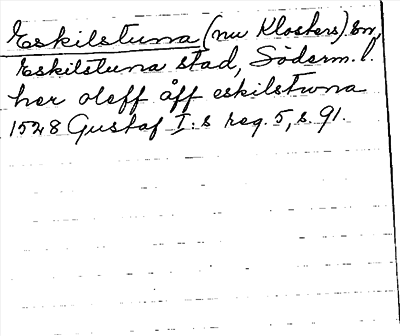 Eskilstuna (nu Klosters) Sn,
Eskilstuna stad, Söderm. l.
her oleff åff eskilstwna
1528 Gustaf I:s reg. 5, s. 91.